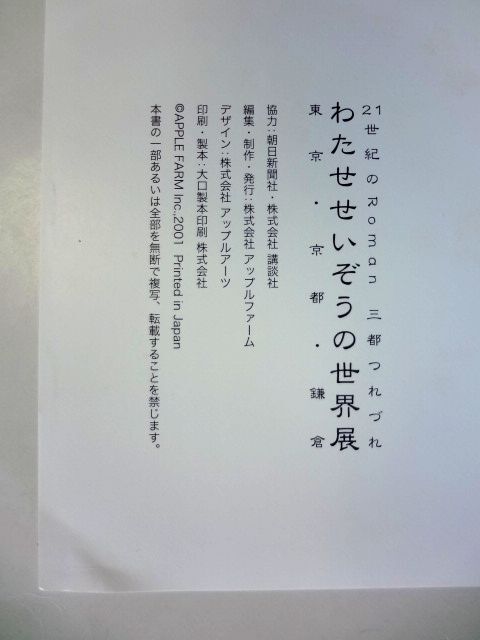 21世紀のRoman 三都つれづれ
わたせせいぞうの世界展
東京・京都・鎌倉
協力：朝日新聞社・株式会社 講談社
編集・制作・発行：株式会社 アップルファーム
デザイン：株式会社 アップルアーツ
印刷・製本：大口製本印刷 株式会社
©APPLE FARM Inc.,2001 Printed in Japan
本書の一部あるいは全部を無断で複写、転載することを禁じます。